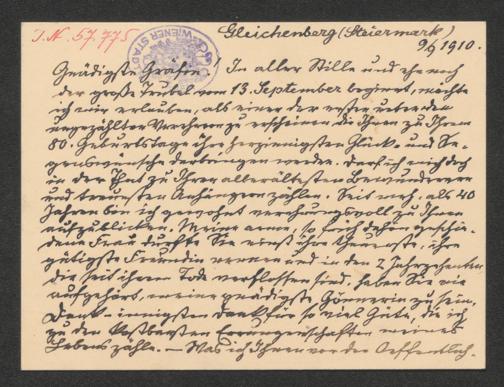 J. N. 57.775
WIENER STADT
Gleichenberg (Steiermark)
9/6 1910.
Gnädigste Gräfin! In aller Stille und ehe noch
der große Trubel vom 13. September beginnt, möchte
ich mir erlauben, als einer der ersten unter den
ungezählten Verehrern zu erscheinen die Ihnen zu Ihrem
80. Geburtstage ihre herzinnigsten Glück- und Se-
genswünsche darbringen werden. Darf ich mich doch
in der That zu Ihren allerältesten Bewunderern
und treuesten Anhängern zählen. Seit mehr als 40
Jahren bin ich gewohnt verehrungsvoll zu Ihnen
aufzublicken. Meine arme, so früh dahin geschie-
dene Frau durfte Sie einst ihre theuerste, ihre
gütigste Freundin nennen und in den 2 Jahrzehnten
die seit ihrem Tode verflossen sind, haben Sie nie
aufgehört, meine gnädigste Gönnerin zu sein.
Dank - innigsten Dank für so viel Güte, die ich
zu den kostbarsten Errungenschaften meines
Lebens zähle. — Was ich Ihnen vor der Oeffentlich-